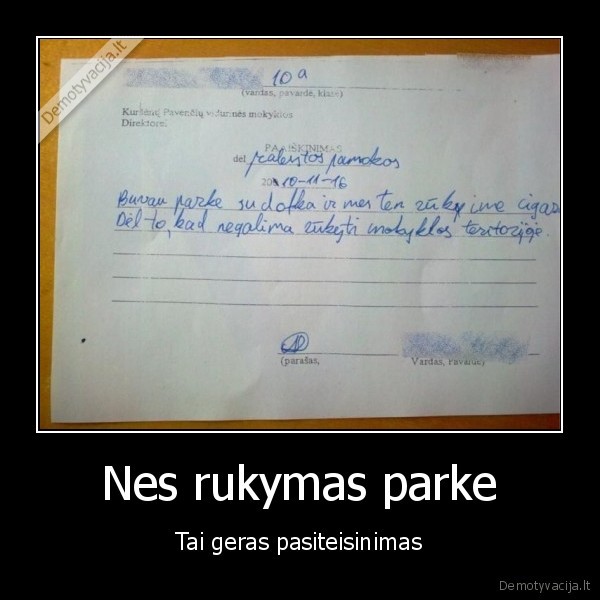 Demotyvacija.lt
10 a
(vardas, pavardė, klasė)
Kuršėnų Pavenčių vidurinės mokyklos
Direktorei.
PAAIŠKINIMAS
dėl praleistos pamokos
2010-11-16
Buvau parke su dofka ir mes ten rūkėme cigar
Dėl to, kad negalima rūkyti mokyklos teritorijoje.
(parašas,
Vardas, Pavardė)
Nes rukymas parke
Tai geras pasiteisinimas
Demotyvacija.lt